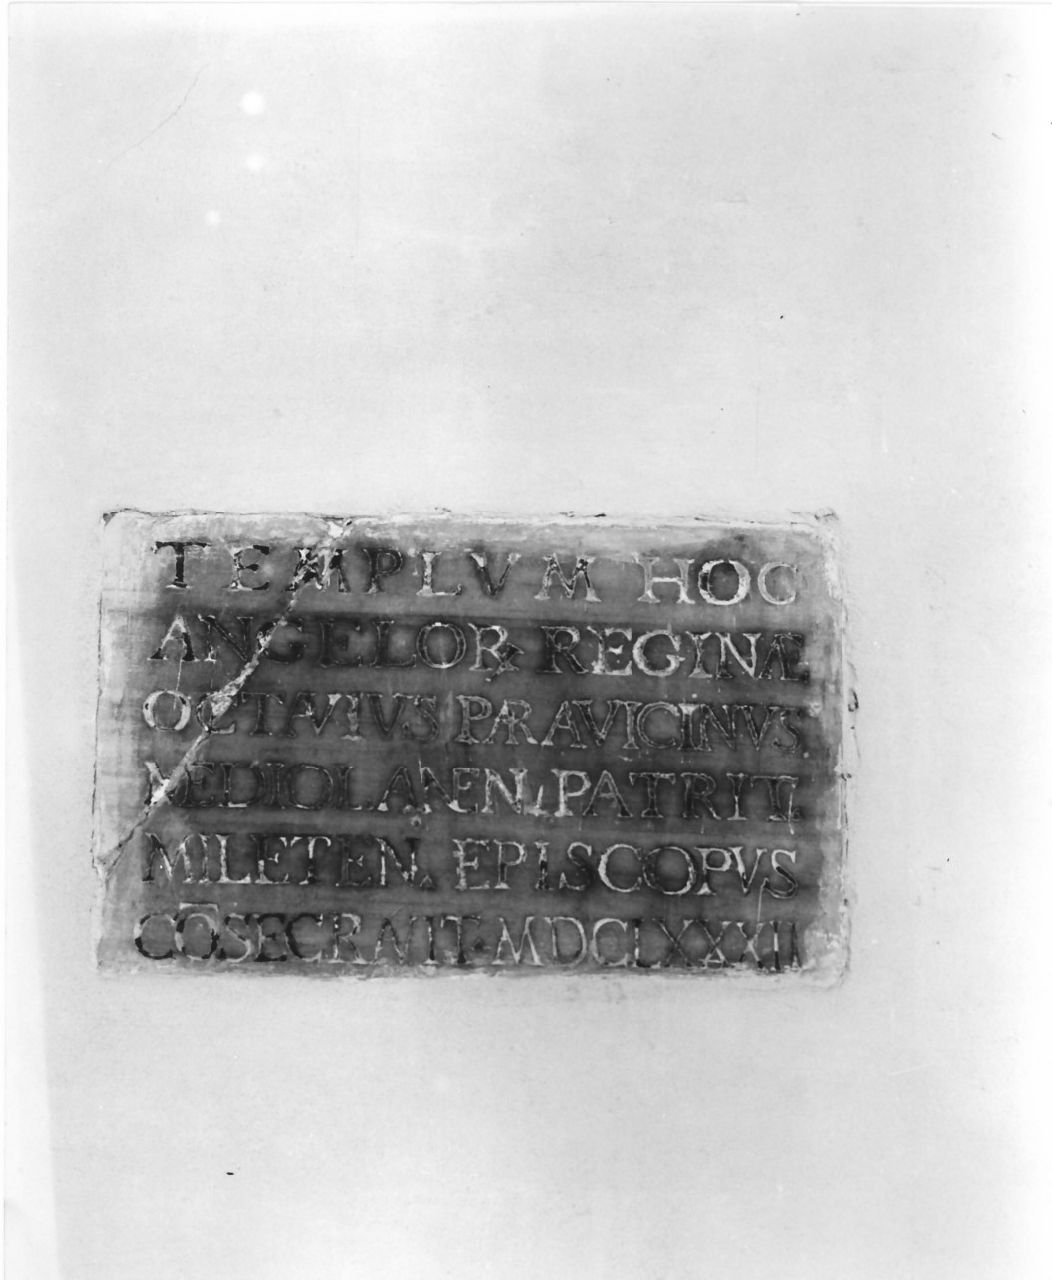 TEMPLVM HOC
ANGELOR REGINÆ
OCTAVIVS PARAVICINVS
MEDIOLANEN. PATRIT.
MILETEN. EPISCOPVS
CŌSECRAVIT·MDCLXXXII